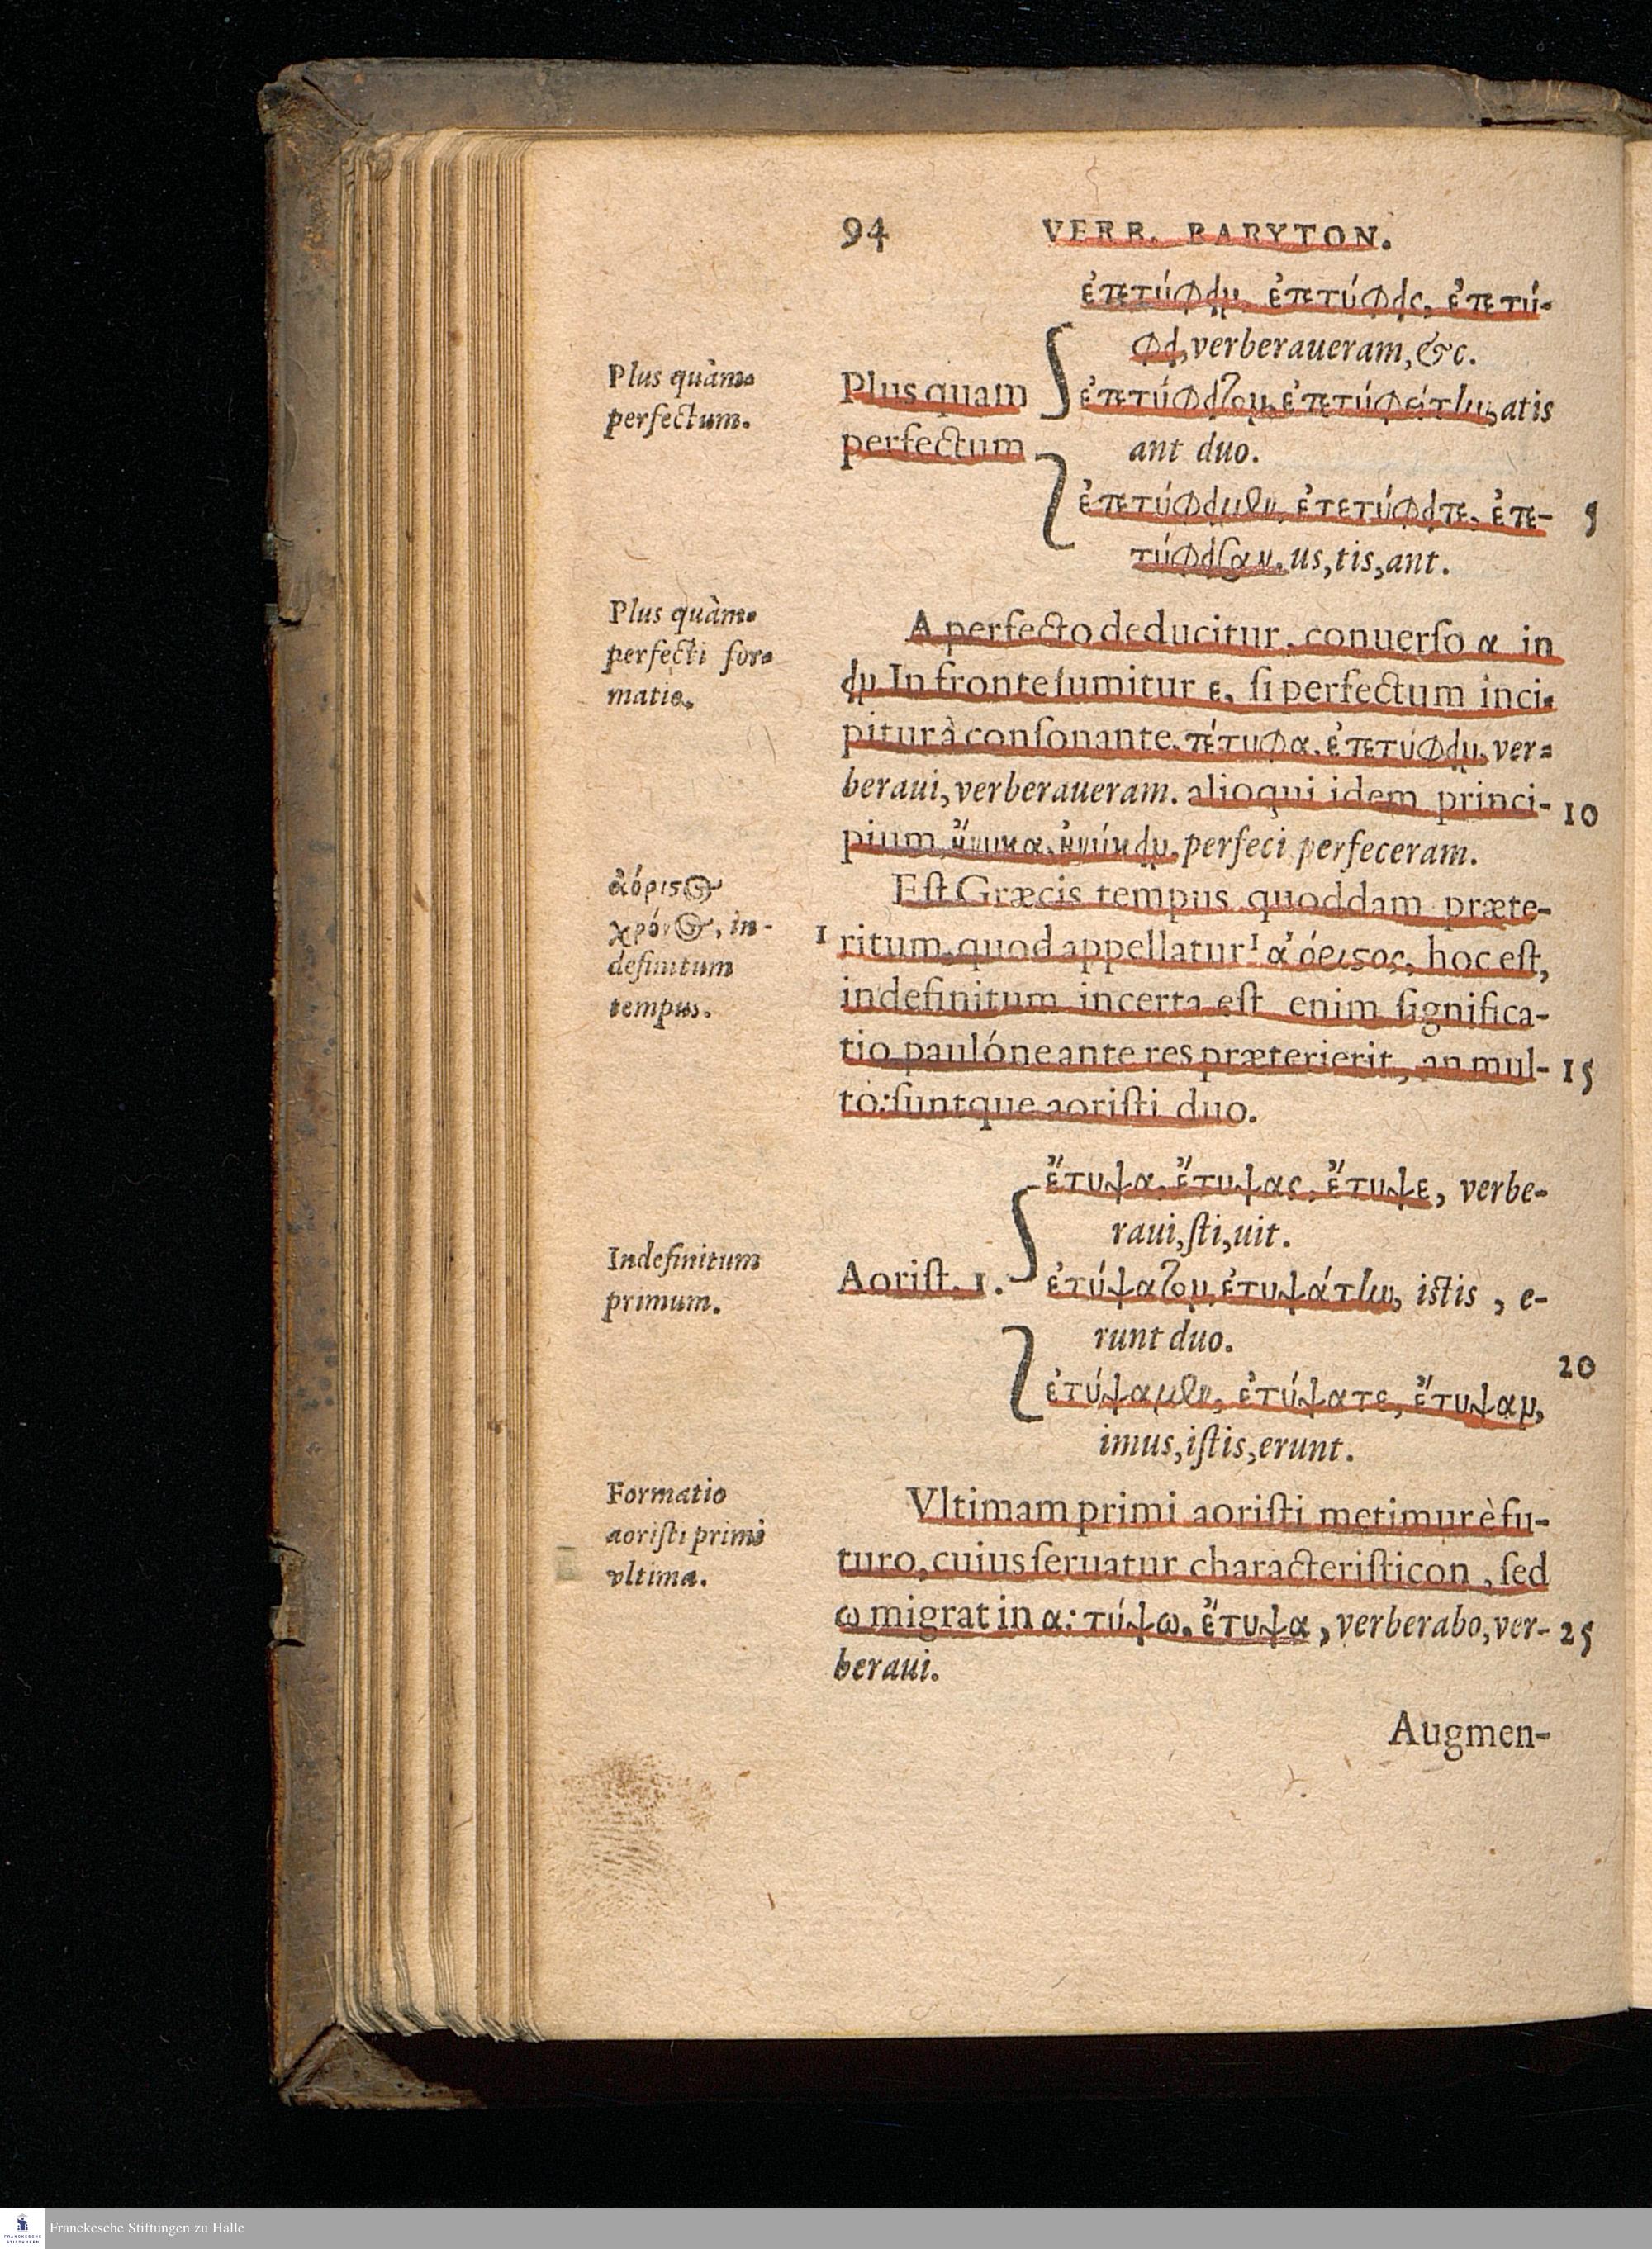 94 VERB. BARYTON.
ἐτετύφειν, ἐτετύφεις, ἐτετύ-
φει, verberaueram, &c.
Plus quàm-
perfectum.
Plusquam
perfectum
ἐτετύφειτον, ἐτετυφείτην, atis
ant duo.
ἐτετύφειμεν, ἐτετύφειτε, ἐτε- 5
τύφεισαν, us, tis, ant.
Plus quàm-
perfecti for-
matio.
A perfecto deducitur, conuerſo α in
ειν In fronte ſumitur ε, ſi perfectum inci-
pitur à conſonante, τέτυφα, ἐτετύφειν, ver-
beraui, verberaueram. alioqui idem princi- 10
pium, ἤνυκα, ἠνύκειν, perfeci perfeceram.
ἀόριστος
χρόνος, in-
definitum
tempus.
Eſt Græcis tempus quoddam præte-
1 ritum, quod appellatur ¹ ἀόριστος, hoc eſt,
indefinitum incerta eſt enim ſignifica-
tio paulóne ante res præterierit, an mul- 15
tò: ſuntque aoriſti duo.
ἔτυψα, ἔτυψας, ἔτυψε, verbe-
raui, ſti, uit.
Indefinitum
primum.
Aoriſt. 1.
ἐτύψατον, ἐτυψάτην, istis, e-
runt duo.
20
ἐτύψαμεν, ἐτύψατε, ἔτυψαν,
imus, iſtis, erunt.
Formatio
aoriſti primi
vltima.
Vltimam primi aoriſti metimur è fu-
turo, cuius ſeruatur characteriſticon, ſed
ω migrat in α: τύψω, ἔτυψα, verberabo, ver- 25
beraui.
Augmen-
Franckesche Stiftungen zu Halle
FRANCKESCHE
STIFTUNGEN